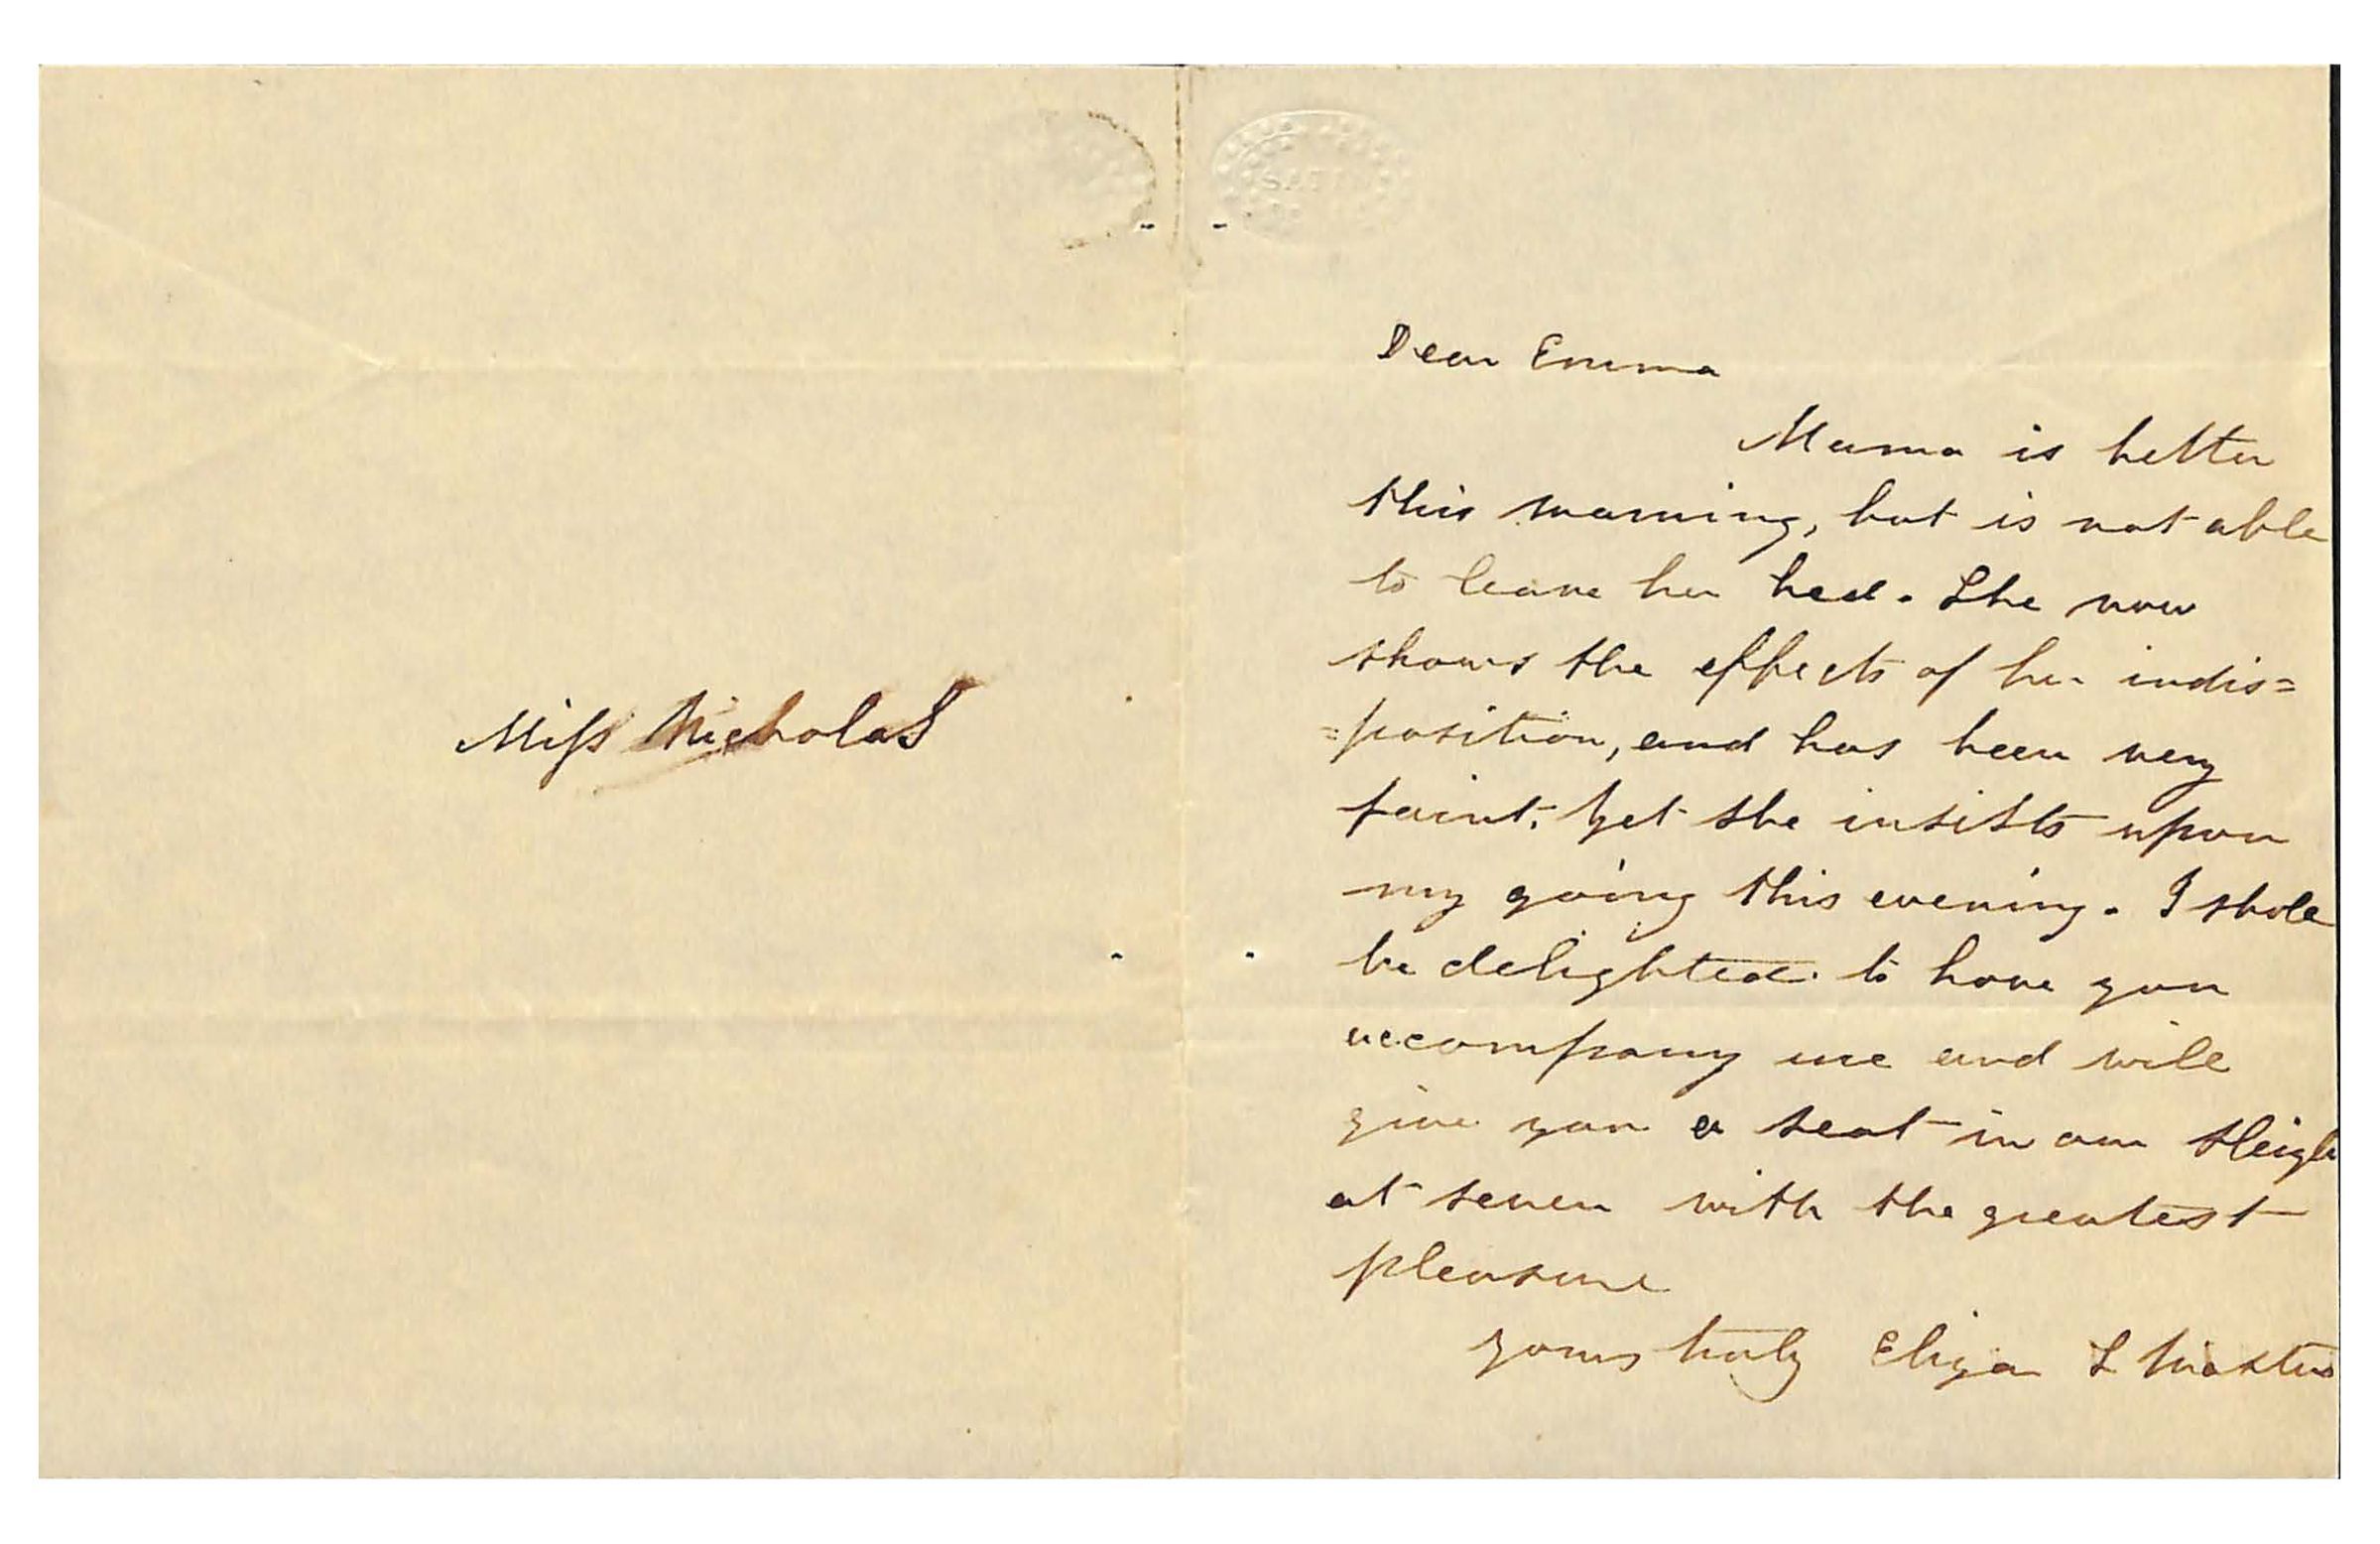 Miss Nicholas
SATIN
Dear Emma
Mama is better
this morning, but is not able
to leave her bed. She now
shows the effects of her indis=
=position, and has been very
faint. Yet she insists upon
my going this evening. I shall
be delighted to have you
accompany me and will
give you a seat in our sleigh
at seven with the greatest
pleasure
yours truly Eliza L Masters